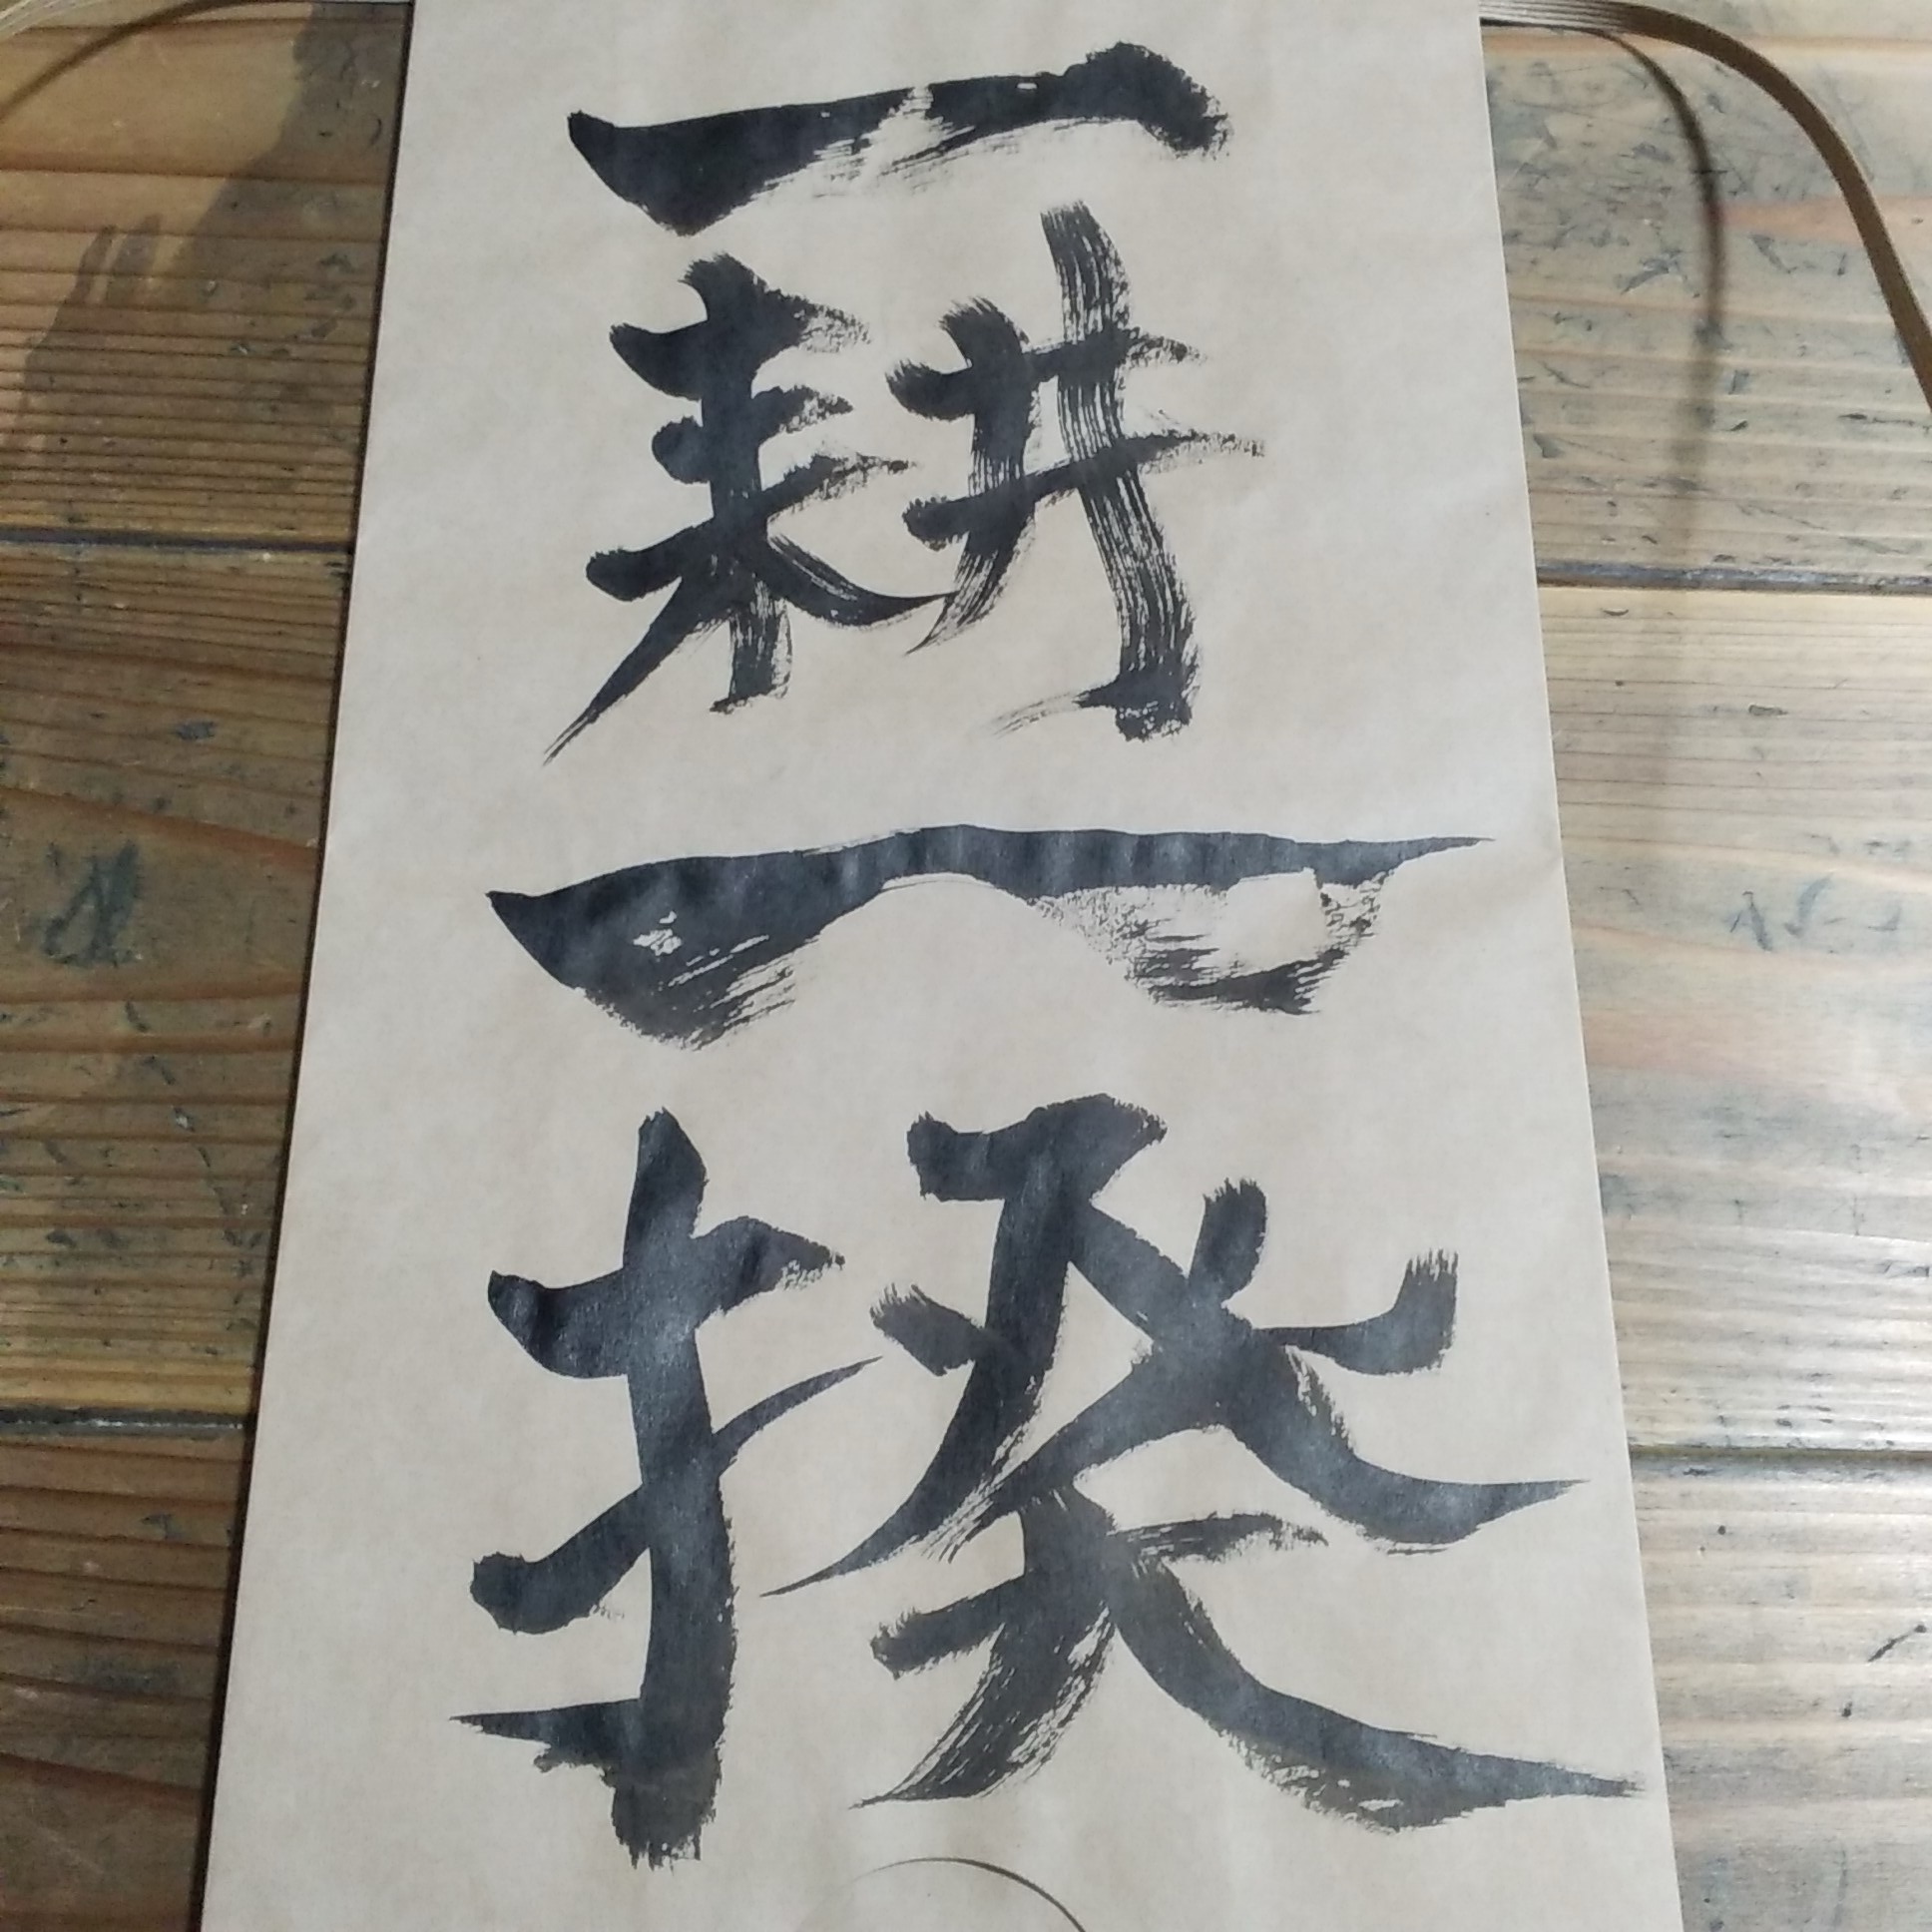 一耕一揆